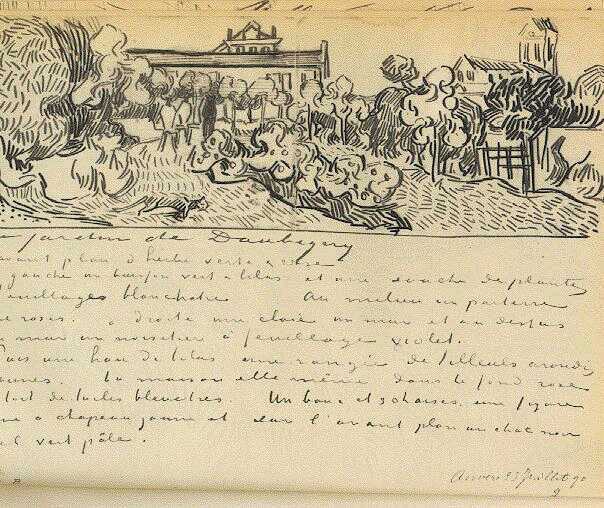 jardin de Daubigny
avant plan d'herbe verte & rose
gauche un buisson vert & lilas et une souche de plantes
feuillages blanchatre Au milieu un parterre
de roses. a droite une claie un mur et au dessus
mur un noisetier à feuillage violet.
Puis une haie de lilas une rangée de tilleuls arrondis
jaunes. La maison elle même dans le fond rose
toit de tuiles bleuatres. Un banc et 3 chaises, une figure
à chapeau jaune et sur l'avant plan un chat noir
vert pâle.
Auvers 23 Juillet 90
2